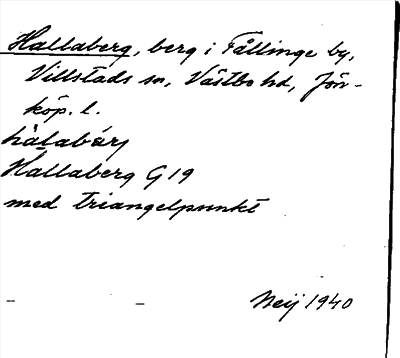 Hallaberg, berg i Fållinge by,
Villstads sn, Västbo hd, Jön-
köp. l.
hàlabárj
Hallaberg G19
med triangelpunkt
Neij 1940